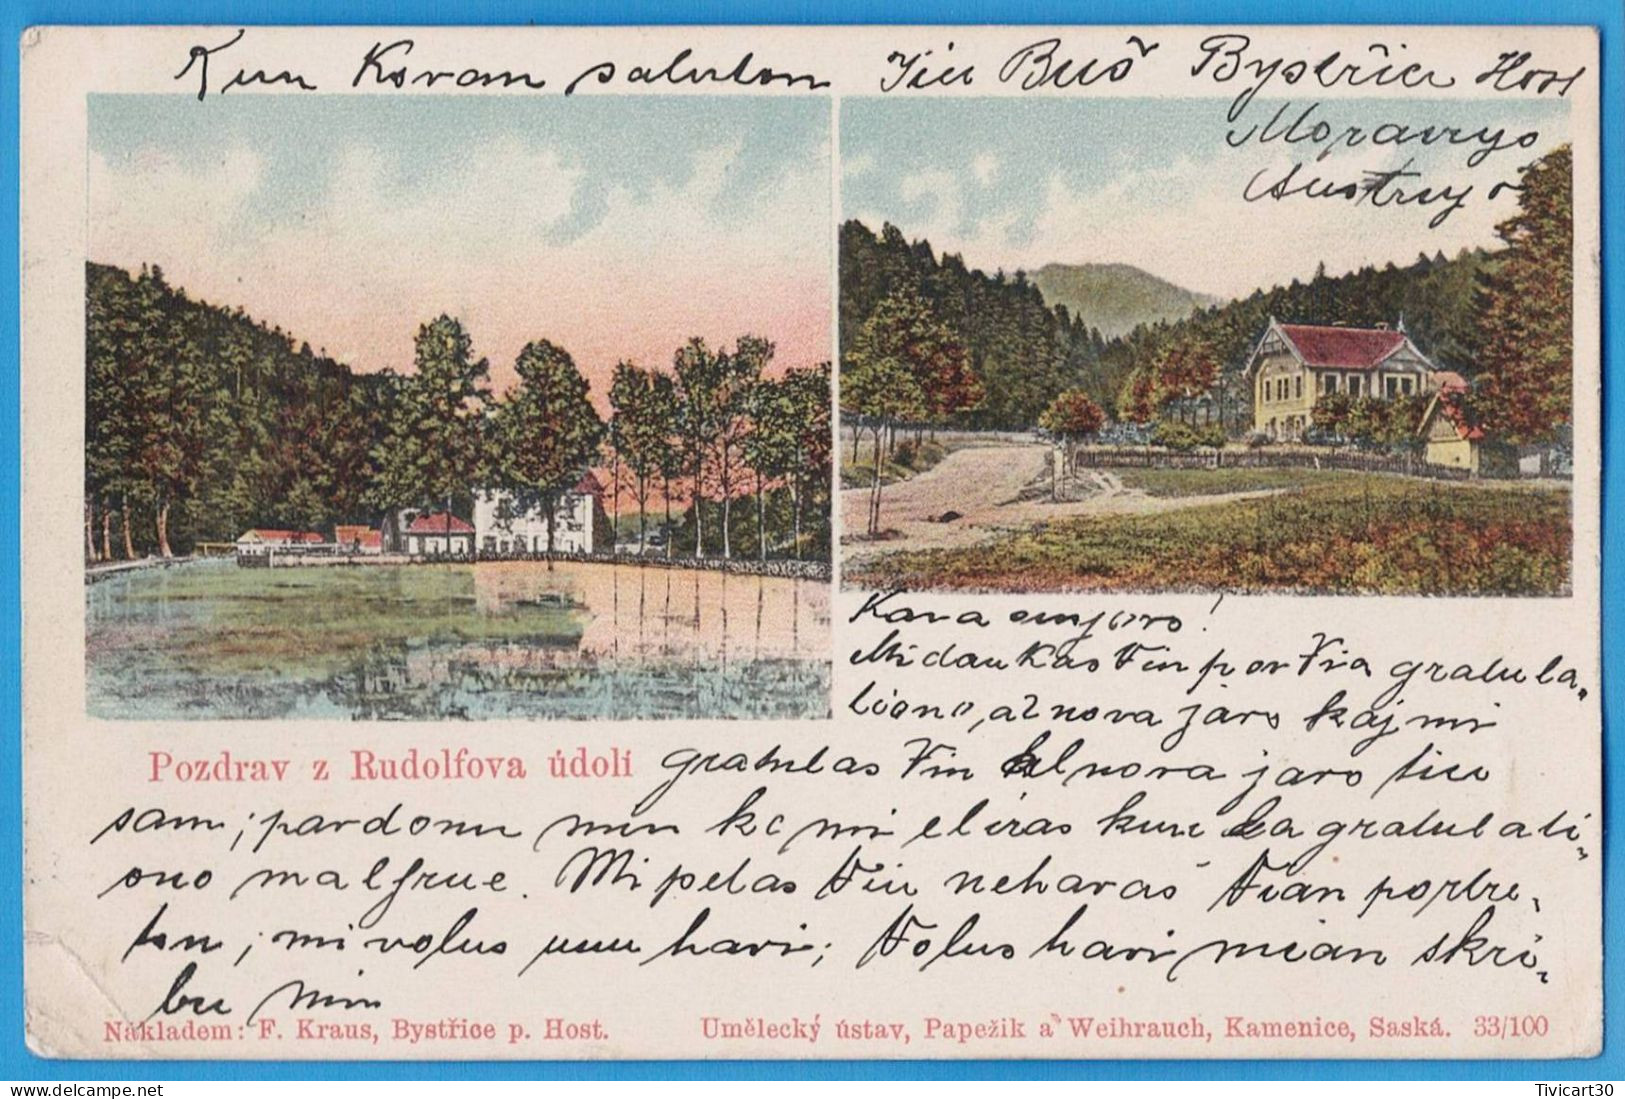 Kun Koran saluton Jiu Buš Bystřice Host
Moravyo
Austryo
Kara sinjoro!
Mi dankas Vin por Via gratula„
lion
nova jaro kaj mi
gratulas Vin al nova jaro tiu
sam; pardonu min ke mi eliras kun la gratulati„
ono malfrue. Mi petas Viu neharas Vian portre„
ton; mi volus unu havi; Volus havi mian skri„
bu min
Pozdrav z Rudolfova údolí
Nákladem: F. Kraus, Bystřice p. Host. Umělecký ústav, Papežik a Weihrauch, Kamenice, Saská. 33/100
Tivicart30